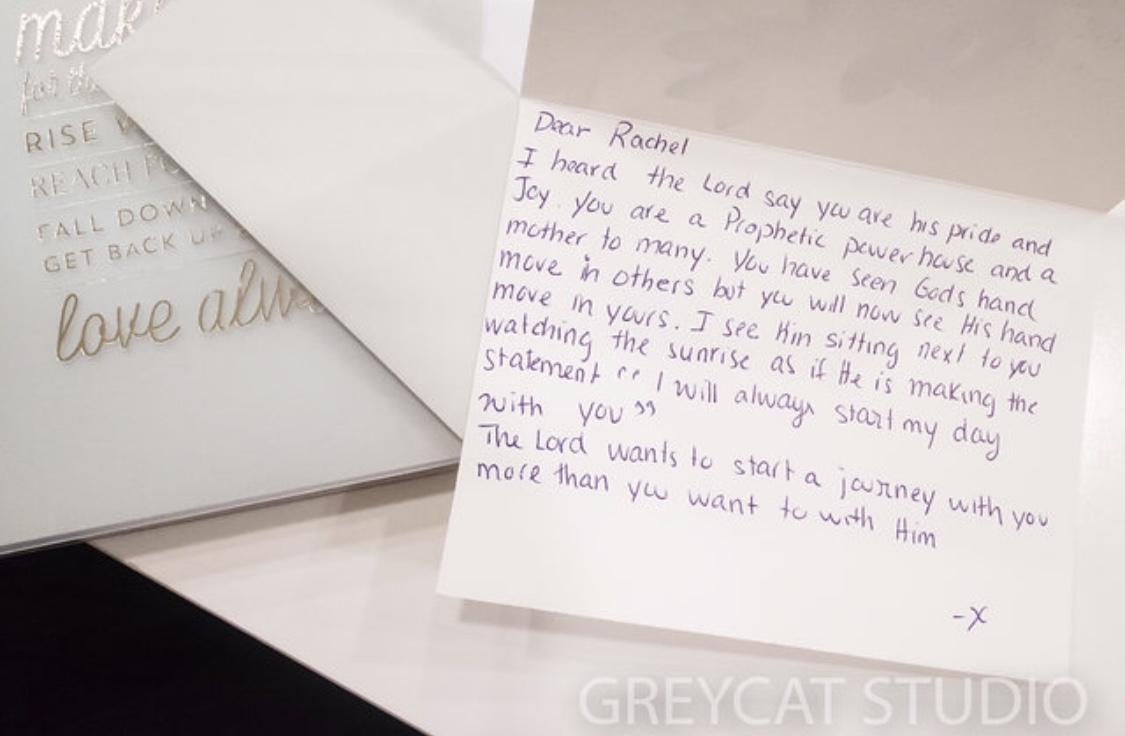 mak
for th
RISE
REACH FO
FALL DOWN
GET BACK UP
love alw
Dear Rachel
I heard the Lord say you are his pride and
Joy. you are a Prophetic powerhouse and a
mother to many. You have seen Gods hand
move in others but you will now see His hand
move in yours. I see Him sitting next to you
watching the sunrise as if He is making the
statement “ I will always start my day
with you ”
The Lord wants to start a journey with you
more than you want to with Him
-X
GREYCAT STUDIO